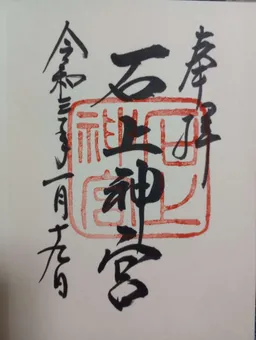 奉拝
石上神宮
石上神宮
令和三年一月十九日